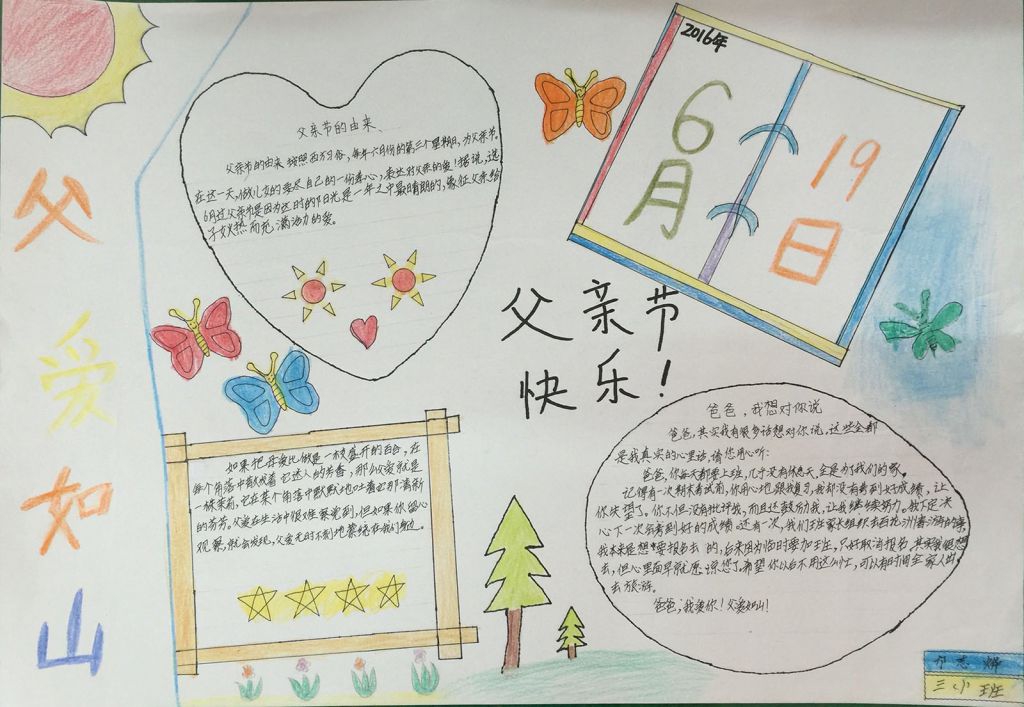 父爱如山
父亲节的由来
父亲节的由来 按照西方习俗，每年六月份的第三个星期日，为父亲节。
在这一天，做儿女的要尽自己的一份孝心，表达对父亲的爱！据说，选
6月过父亲节是因为这时的阳光是一年之中最晴朗的，象征父亲给
子女火热而充满活力的爱。
2016年
6月
19日
父亲节
快乐！
如果把母爱比做是一枝盛开的百合，在
每个角落中散放着它迷人的芳香，那么父爱就是
一株茉莉，它在某个角落中默默地吐着它那清新
的芬芳。父爱在生活中很难察觉到，但如果你留心
观察，就会发现，父爱无时不刻地萦绕在我们身边。
爸爸，我想对你说
爸爸，其实我有很多话想对你说，这些全都
是我真实的心里话，请您用心听：
爸爸，你每天都要上班，几乎没有休息天，全是为了我们的家。
记得有一次期末考试前，你用心地跟我复习，我却没有考到好成绩，让
你失望了。你不但没有批评我，而且还鼓励我，让我继续努力。我下定决
心下一次考到好的成绩。还有一次，我们班家长组织去
我本来是想要报名去的，后来因为临时要加班，只好取消报名，其实我很想
去，但心里面早就原谅您了。希望你以后不用这么忙，可以有时间全家人出
去旅游。
爸爸，我爱你！父爱如山！
三 班